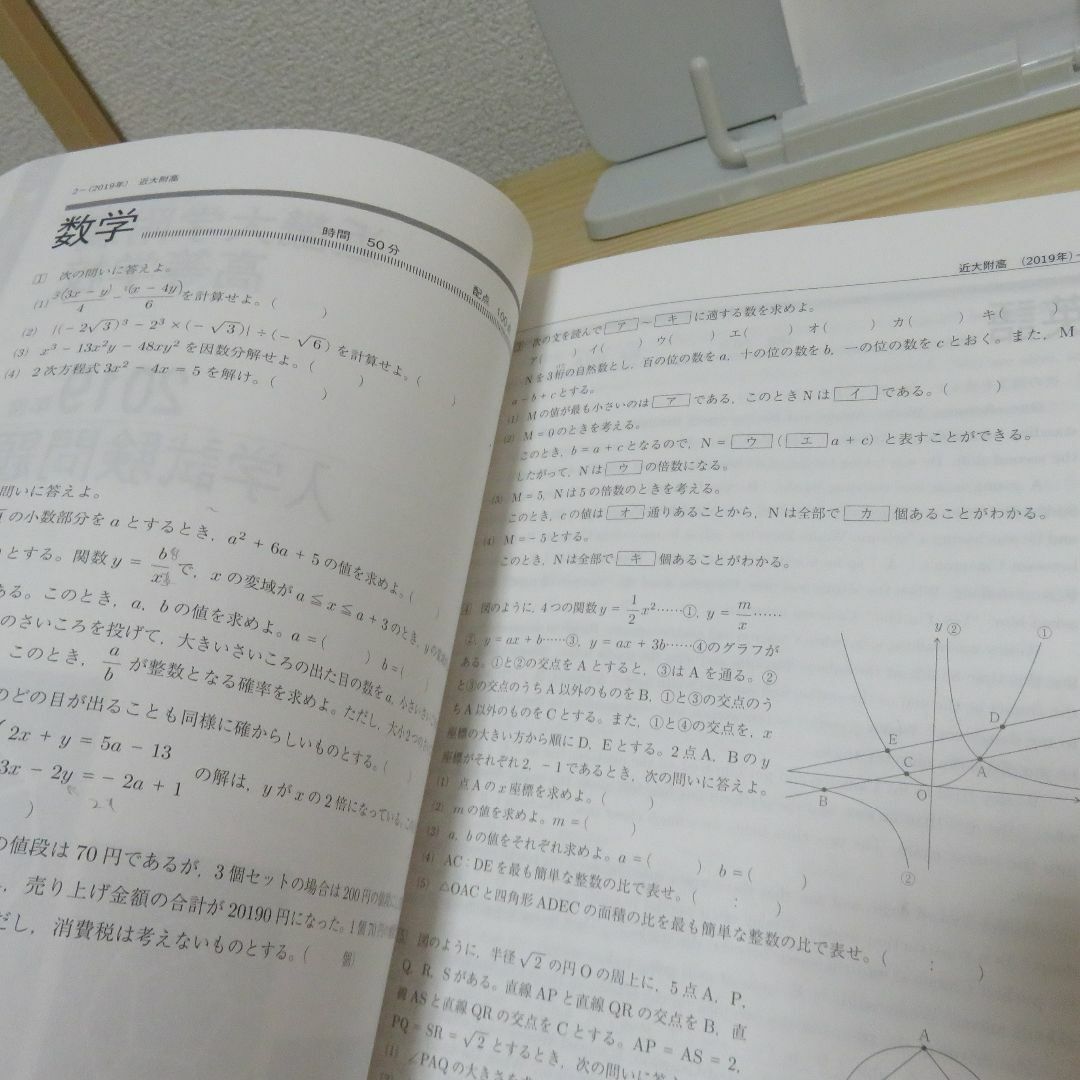 2－(2019年) 近大附高
数学
時間 50分
配点 100点
1 次の問いに答えよ。
(1) 3(3x－y)/4－(x－4y)/6 を計算せよ。( )
(2) {(－2√3)³－2³×(－√3)}÷(－√6) を計算せよ。( )
(3) x³－13x²y－48xy² を因数分解せよ。( )
(4) 2次方程式 3x²－4x＝5 を解け。( )
問いに答えよ。
の小数部分を a とするとき，a²＋6a＋5 の値を求めよ。( )
とする。関数 y＝b/x で，x の変域が a≦x≦a＋3 のとき，y の
ある。このとき，a，b の値を求めよ。a＝( ) b＝( )
のさいころを投げて，大きいさいころの出た目の数を a，小さい
このとき，a/b が整数となる確率を求めよ。ただし，大小2つの
のどの目が出ることも同様に確からしいものとする。( )
2x＋y＝5a－13
3x－2y＝－2a＋1
の解は，y が x の2倍になっている。
)
の値段は70円であるが，3個セットの場合は200円の値段に
売り上げ金額の合計が20190円になった。1個70円の
だし，消費税は考えないものとする。( 個)
近大附高 (2019年)－
3 次の文を読んで ア ～ キ に適する数を求めよ。
ア( ) イ( ) ウ( ) エ( ) オ( ) カ( ) キ( )
N を3桁の自然数とし，百の位の数を a，十の位の数を b，一の位の数を c とおく。また，M
a－b＋c とする。
(1) M の値が最も小さいのは ア である。このとき N は イ である。( )
(2) M＝0 のときを考える。
このとき，b＝a＋c となるので，N＝ ウ ( エ a＋c) と表すことができる。
したがって，N は ウ の倍数になる。
(3) M＝5，N は5の倍数のときを考える。
このとき，c の値は オ 通りあることから，N は全部で カ 個あることがわかる。
(4) M＝－5 とする。
このとき，N は全部で キ 個あることがわかる。
4 図のように，4つの関数 y＝1/2x²……①，y＝m/x……
②，y＝ax＋b……③，y＝ax＋3b……④のグラフが
ある。①と②の交点を A とすると，③は A を通る。②
と③の交点のうち A 以外のものを B，①と③の交点のう
ち A 以外のものを C とする。また，①と④の交点を，x
座標の大きい方から順に D，E とする。2点 A，B の y
座標がそれぞれ2，－1であるとき，次の問いに答えよ。
(1) 点 A の x 座標を求めよ。( )
(2) m の値を求めよ。m＝( )
(3) a，b の値をそれぞれ求めよ。a＝( ) b＝( )
(4) AC：DE を最も簡単な整数の比で表せ。( ： )
(5) △OAC と四角形 ADEC の面積の比を最も簡単な整数の比で表せ。( ： )
y
②
①
D
E
C
A
B
O
②
5 図のように，半径√2の円 O の周上に，5点 A，P，
Q，R，S がある。直線 AP と直線 QR の交点を B，直
線 AS と直線 QR の交点を C とする。AP＝AS＝2，
PQ＝SR＝√2 とするとき，次の問いに答
(1) ∠PAQ の大きさを
A